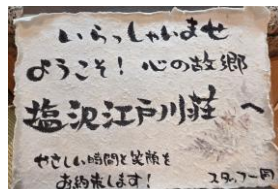 いらっしゃいませ
ようこそ！心の故郷
塩沢江戸川荘へ
やさしい時間と笑顔を
お約束します！
スタッフ一同